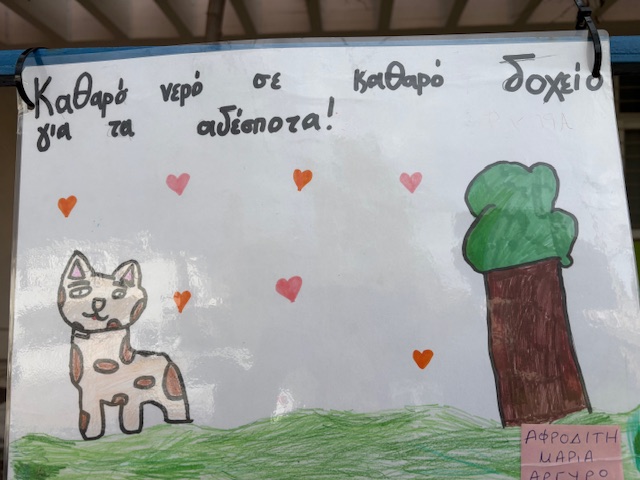 Καθαρό νερό σε καθαρό δοχείο
για τα αδέσποτα!
ΑΦΡΟΔΙΤΗ
ΜΑΡΙΑ
ΑΡΓΥΡΟ